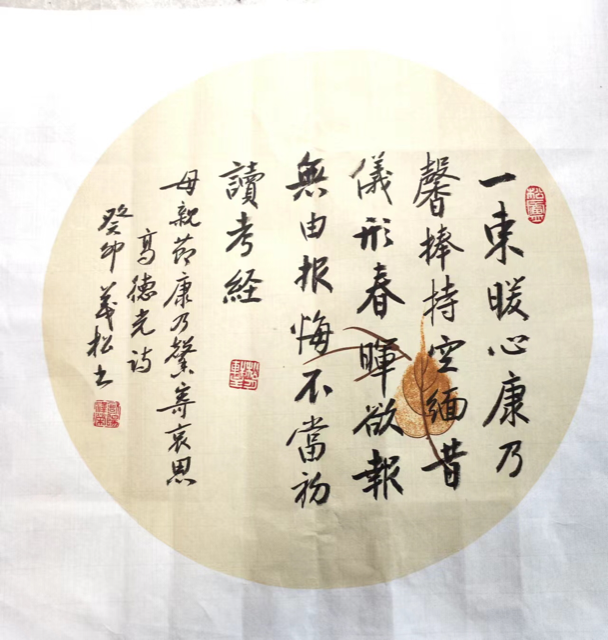 一束暖心康乃
馨捧持空缅昔
儀形春暉欲報
無由报悔不當初
讀孝経
母親節康乃馨寄哀思
高德光诗
癸卯義松书